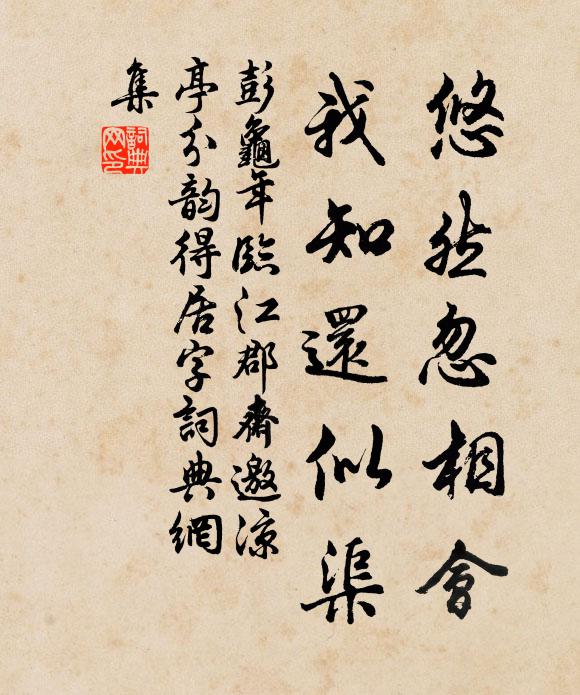 悠然忽相會
我知還似渠
彭龜年臨江郡齋邀涼
亭分韵得居字詞典網
集
詞典
网印